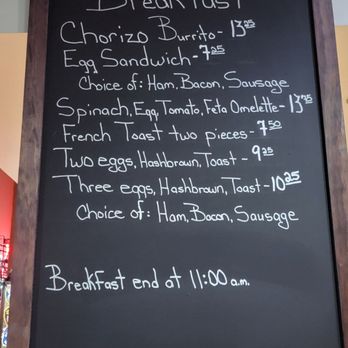 Breakfast
Chorizo Burrito - 13.25
Egg Sandwich - 7.25
Choice of: Ham, Bacon, Sausage
Spinach, Egg, Tomato, Feta Omelette - 13.75
French Toast two pieces - 7.50
Two eggs, Hashbrown, Toast - 9.25
Three eggs, Hashbrown, Toast - 10.25
Choice of: Ham, Bacon, Sausage
Breakfast end at 11:00 a.m.